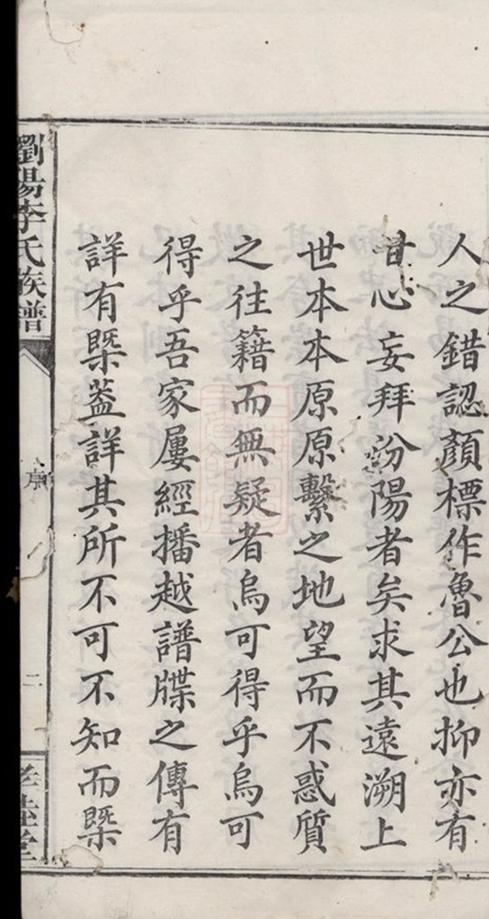 人之錯認顏標作魯公也抑亦有
甘心妄拜汾陽者矣求其遠溯上
世本本原原繫之地望而不惑質
之往籍而無疑者烏可得乎烏可
得乎吾家屢經播越譜牒之傳有
詳有槩葢詳其所不可不知而槩
瀏陽李氏族譜
序
二
孝睦堂